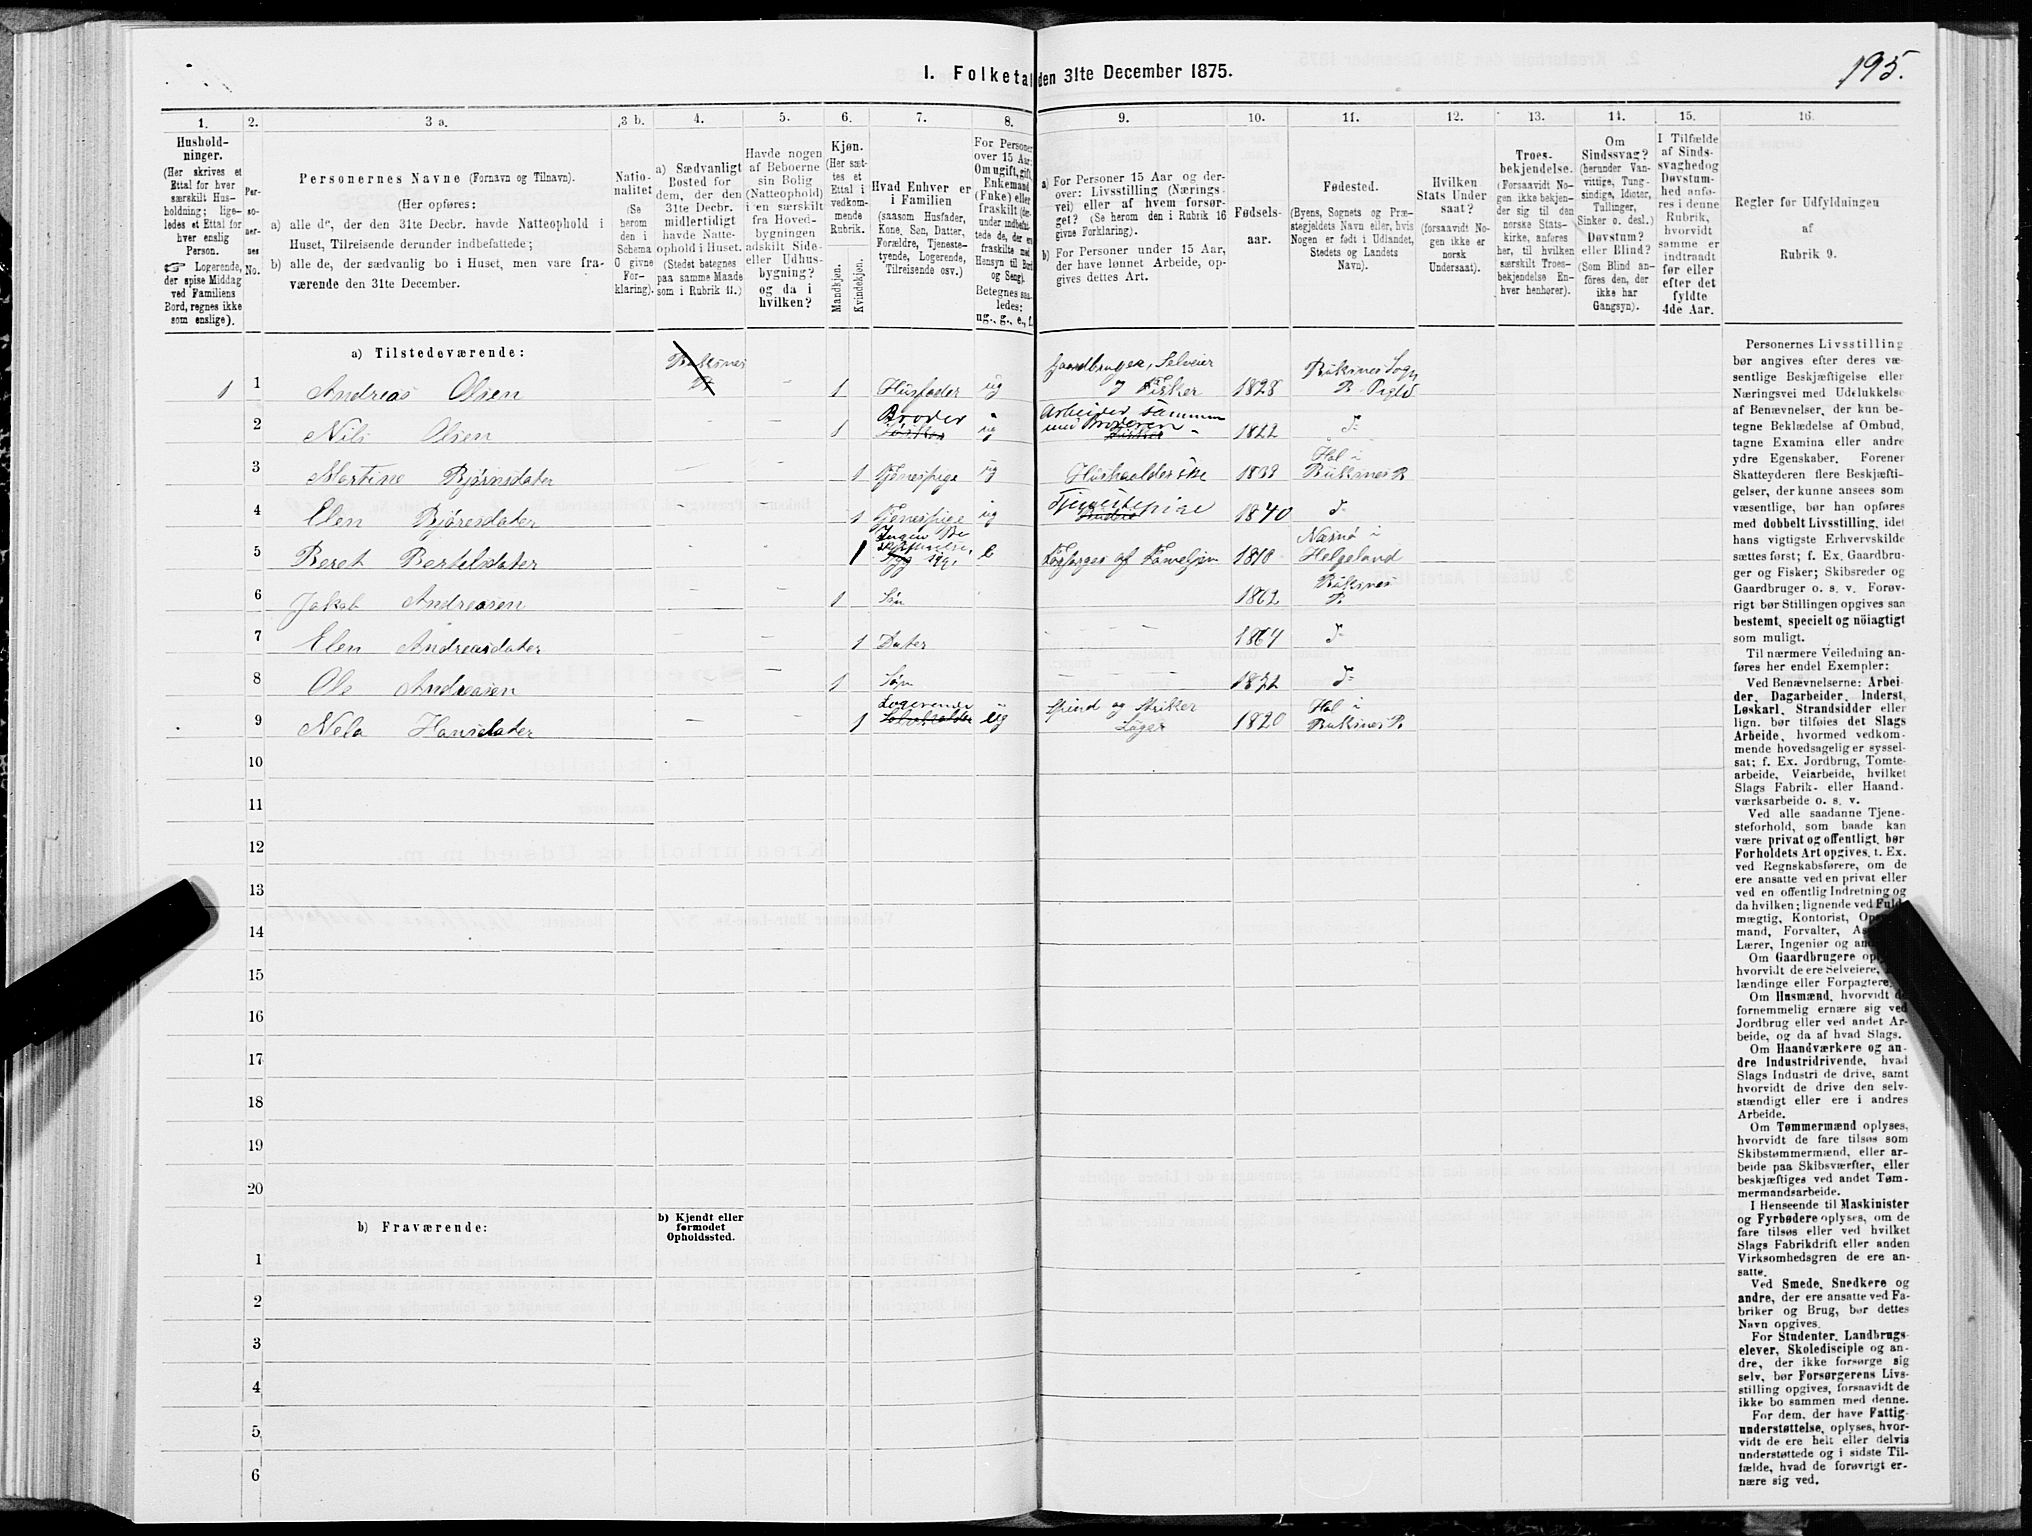 195.
I. Folketal den 31te December 1875.
1. 2. 3 a. 3 b. 4. 5. 6. 7. 8. 9. 10. 11. 12. 13. 14. 15. 16.
Hushold-
ninger.
(Her skrives et
Ettal for hver
særskilt Hus-
holdning; lige-
ledes et Ettal for
hver enslig
Person.
☞ Logerende,
der spise Middag
ved Familiens
Bord, regnes ikke
som enslige).
Per-
so-
ner-
nes
No.
Personernes Navne (Fornavn og Tilnavn).
(Her opføres:
a) alle de, der den 31te Decbr. havde Natteophold i
Huset, Tilreisende derunder indbefattede;
b) alle de, der sædvanlig bo i Huset, men vare fra-
værende den 31te December.
Natio-
nalitet
(Se
herom
den i
Schema
O givne
For-
klaring).
a) Sædvanligt
Bosted for
dem, der den
31te Decbr.
midlertidigt
havde Natte-
ophold i Huset.
(Stedet betegnes
paa samme Maade
som i Rubrik 11.)
Havde nogen
af Beboerne
sin Bolig
(Natteophold)
i en særskilt
fra Hoved-
bygningen
adskilt Side-
eller Udhus-
bygning?
og da i
hvilken?
Kjøn.
(Her sæt-
tes et
Ettal i
vedkom-
mende
Rubrik.
Mandkjøn.
Kvindekjøn.
Hvad Enhver er
i Familien
(saasom Husfader,
Kone, Søn, Datter,
Forældre, Tjeneste-
tyende, Logerende,
Tilreisende osv.)
For Personer
over 15 Aar:
Om ugift, gift,
Enkemand
(Enke) eller
fraskilt (der-
under indbefat-
tede de, der ere
fraskilte med
Hensyn til Bord
og Seng).
Betegnes saa-
ledes:
ug., g., e., f.
a) For Personer 15 Aar og der-
over: Livsstilling (Nærings-
vei) eller af hvem forsør-
get? (Se herom den i Rubrik 16
givne Forklaring).
b) For Personer under 15 Aar,
der have lønnet Arbeide, op-
gives dettes Art.
Fødsels-
aar.
Fødested.
(Byens, Sognets og Præ-
stegjeldets Navn eller, hvis
Nogen er født i Udlandet,
Stedets og Landets
Navn).
Hvilken
Stats Under
saat?
(forsaavidt No-
gen ikke er
norsk
Undersaat).
Troes-
bekjendelse.
(Forsaavidt No-
gen ikke bekjen-
der sig til den
norske Stats-
kirke, anføres
her, til hvilken
særskilt Troes-
bekjendelse En-
hver henhører).
Om
Sindssvag?
(herunder Van-
vittige, Tung-
sindige, Idioter,
Tullinger,
Sinker o. desl.)
Døvstum?
eller Blind?
(Som Blind an-
føres den, der
ikke har
Gangsyn).
I Tilfælde
af Sinds-
svaghedog
Døvstum-
hed anfø-
res i denne
Rubrik,
hvorvidt
samme er
indtraadt
før eller
efter det
fyldte
4de Aar.
Regler før Udfyldningen
af
Rubrik 9.
a) Tilstedeværende:
Buksnes P
1 1 Andreas Olsen - 1 Husfader ug Gaardbruger, Selveier og Fisker 1828 Buksnes Sogn P
2 Nils Olsen 1 Broder ug Arbeider sammen med Broderen 1822 d
3 Martine Bjørnsdater - - 1 Tjenespige ug Husholderske 1833 Hol i Buksnes P
4 Elen Bjørnsdater - - 1 Tjenespige ug Tjenestepige 1840 d
5 Beret Bertelsdater - - 1 e Forsørges af Familjen 1810 Næsnø i Helgeland
6 Jakob Andreasen - - 1 Søn 1862 Buksnes P
7 Elen Andreasdater - - 1 Dater - - - 1864 d
8 Ole Andreasen - - 1 Søn - - - 1871 d
9 Nela Hansdater - - 1 Logerende ug Spind og Strikker 1820 Hol i Buksnes P
10
11
12
13
14
15
16
17
18
19
20
b) Fraværende:
b) Kjendt eller
formodet
Opholdssted.
1
2
3
4
5
6
Personernes Livsstilling
bør angives efter deres væ-
sentlige Beskjæftigelse eller
Næringsvei med Udelukkelse
af Benævnelser, der kun be-
tegne Beklædelse af Ombud,
tagne Examina eller andre
ydre Egenskaber. Forener
Skatteyderen flere Beskjæfti-
gelser, der kunne ansees som
væsentlige, bør han opføres
med dobbelt Livsstilling, idet
hans vigtigste Erhvervskilde
sættes først; f. Ex. Gaardbru-
ger og Fisker; Skibsreder og
Gaardbruger o. s. v. Forøv-
rigt bør Stillingen opgives saa
bestemt, specielt og nöiagtigt
som muligt.
Til nærmere Veiledning an-
føres her endel Exempler:
Ved Benævnelserne: Arbei-
der, Dagarbeider, Inderst,
Løskarl, Strandsidder eller
lign. bør tilføies det Slags
Arbeide, hvormed vedkom-
mende hovedsagelig er syssel-
sat; f. Ex. Jordbrug, Tomte-
arbeide, Veiarbeide, hvilket
Slags Fabrik- eller Haand-
værksarbeide o. s. v.
Ved alle saadanne Tjene-
steforhold, som baade kan
være privat og offentligt, bør
Forholdets Art opgives, t. Ex.
ved Regnskabsførere, om de
ere ansatte ved en privat eller
ved en offentlig Indretning og
da hvilken; lignende ved Fuld-
mægtig, Kontorist,
mand, Forvalter,
Lærer, Ingeniør og
Om Gaardbrugere
hvorvidt de ere Selveiere,
lændinge eller Forpagtere.
Om Husmænd, hvorvidt de
fornemmelig ernære sig ved
Jordbrug eller ved andet Ar-
beide, og da af hvad Slags.
Om Haandværkere og an-
dre Industridrivende, hvad
Slags Industri de drive, samt
hvorvidt de drive den selv-
stændigt eller ere i andres
Arbeide.
Om Tømmermænd oplyses,
hvorvidt de fare tilsøs som
Skibstømmermænd, eller ar-
beide paa Skibsværfter, eller
beskjæftiges ved andet Tøm-
mermandsarbeide.
I Henseende til Maskinister
og Fyrbødere oplyses, om de
fare tilsøs eller ved hvilket
Slags Fabrikdrift eller anden
Virksomhedsgren de ere an-
satte.
Ved Smede, Snedkere og
andre, der ere ansatte ved Fa-
briker og Brug, bør dettes
Navn opgives.
For Studenter, Landbrugs-
elever, Skoledisciple og an-
dre, der ikke forsørge sig
selv, bør Forsørgerens Livs-
stilling opgives, forsaavidt de
ikke bo sammen med denne.
For dem, der have Fattig-
understøttelse, oplyses, hvor-
vidt de ere helt eller delvis
understøttede og i sidste Til-
fælde, hvad de forøvrigt er-
nære sig ved.